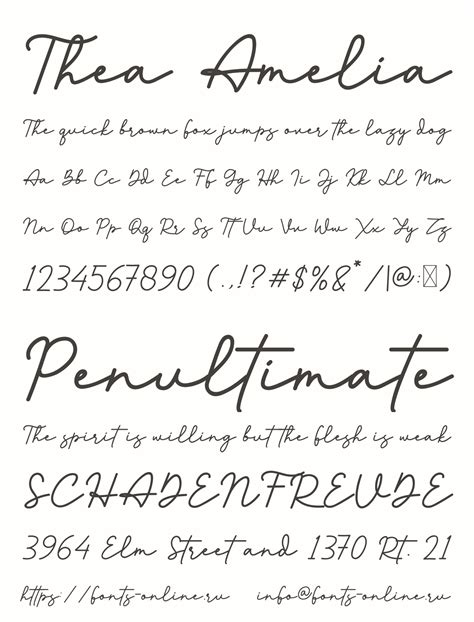 Thea Amelia
The quick brown fox jumps over the lazy dog
Aa Bb Cc Dd Ee Ff Gg Hh Ii Jj Kk Ll Mm
Nn Oo Pp Qq Rr Ss Tt Uu Vv Ww Xx Yy Zz
1234567890 (.,!?#$%&*/|\@:;)
Penultimate
The spirit is willing but the flesh is weak
SCHADENFREUDE
3964 Elm Street and 1370 Rt. 21
https://fonts-online.ru info@fonts-online.ru